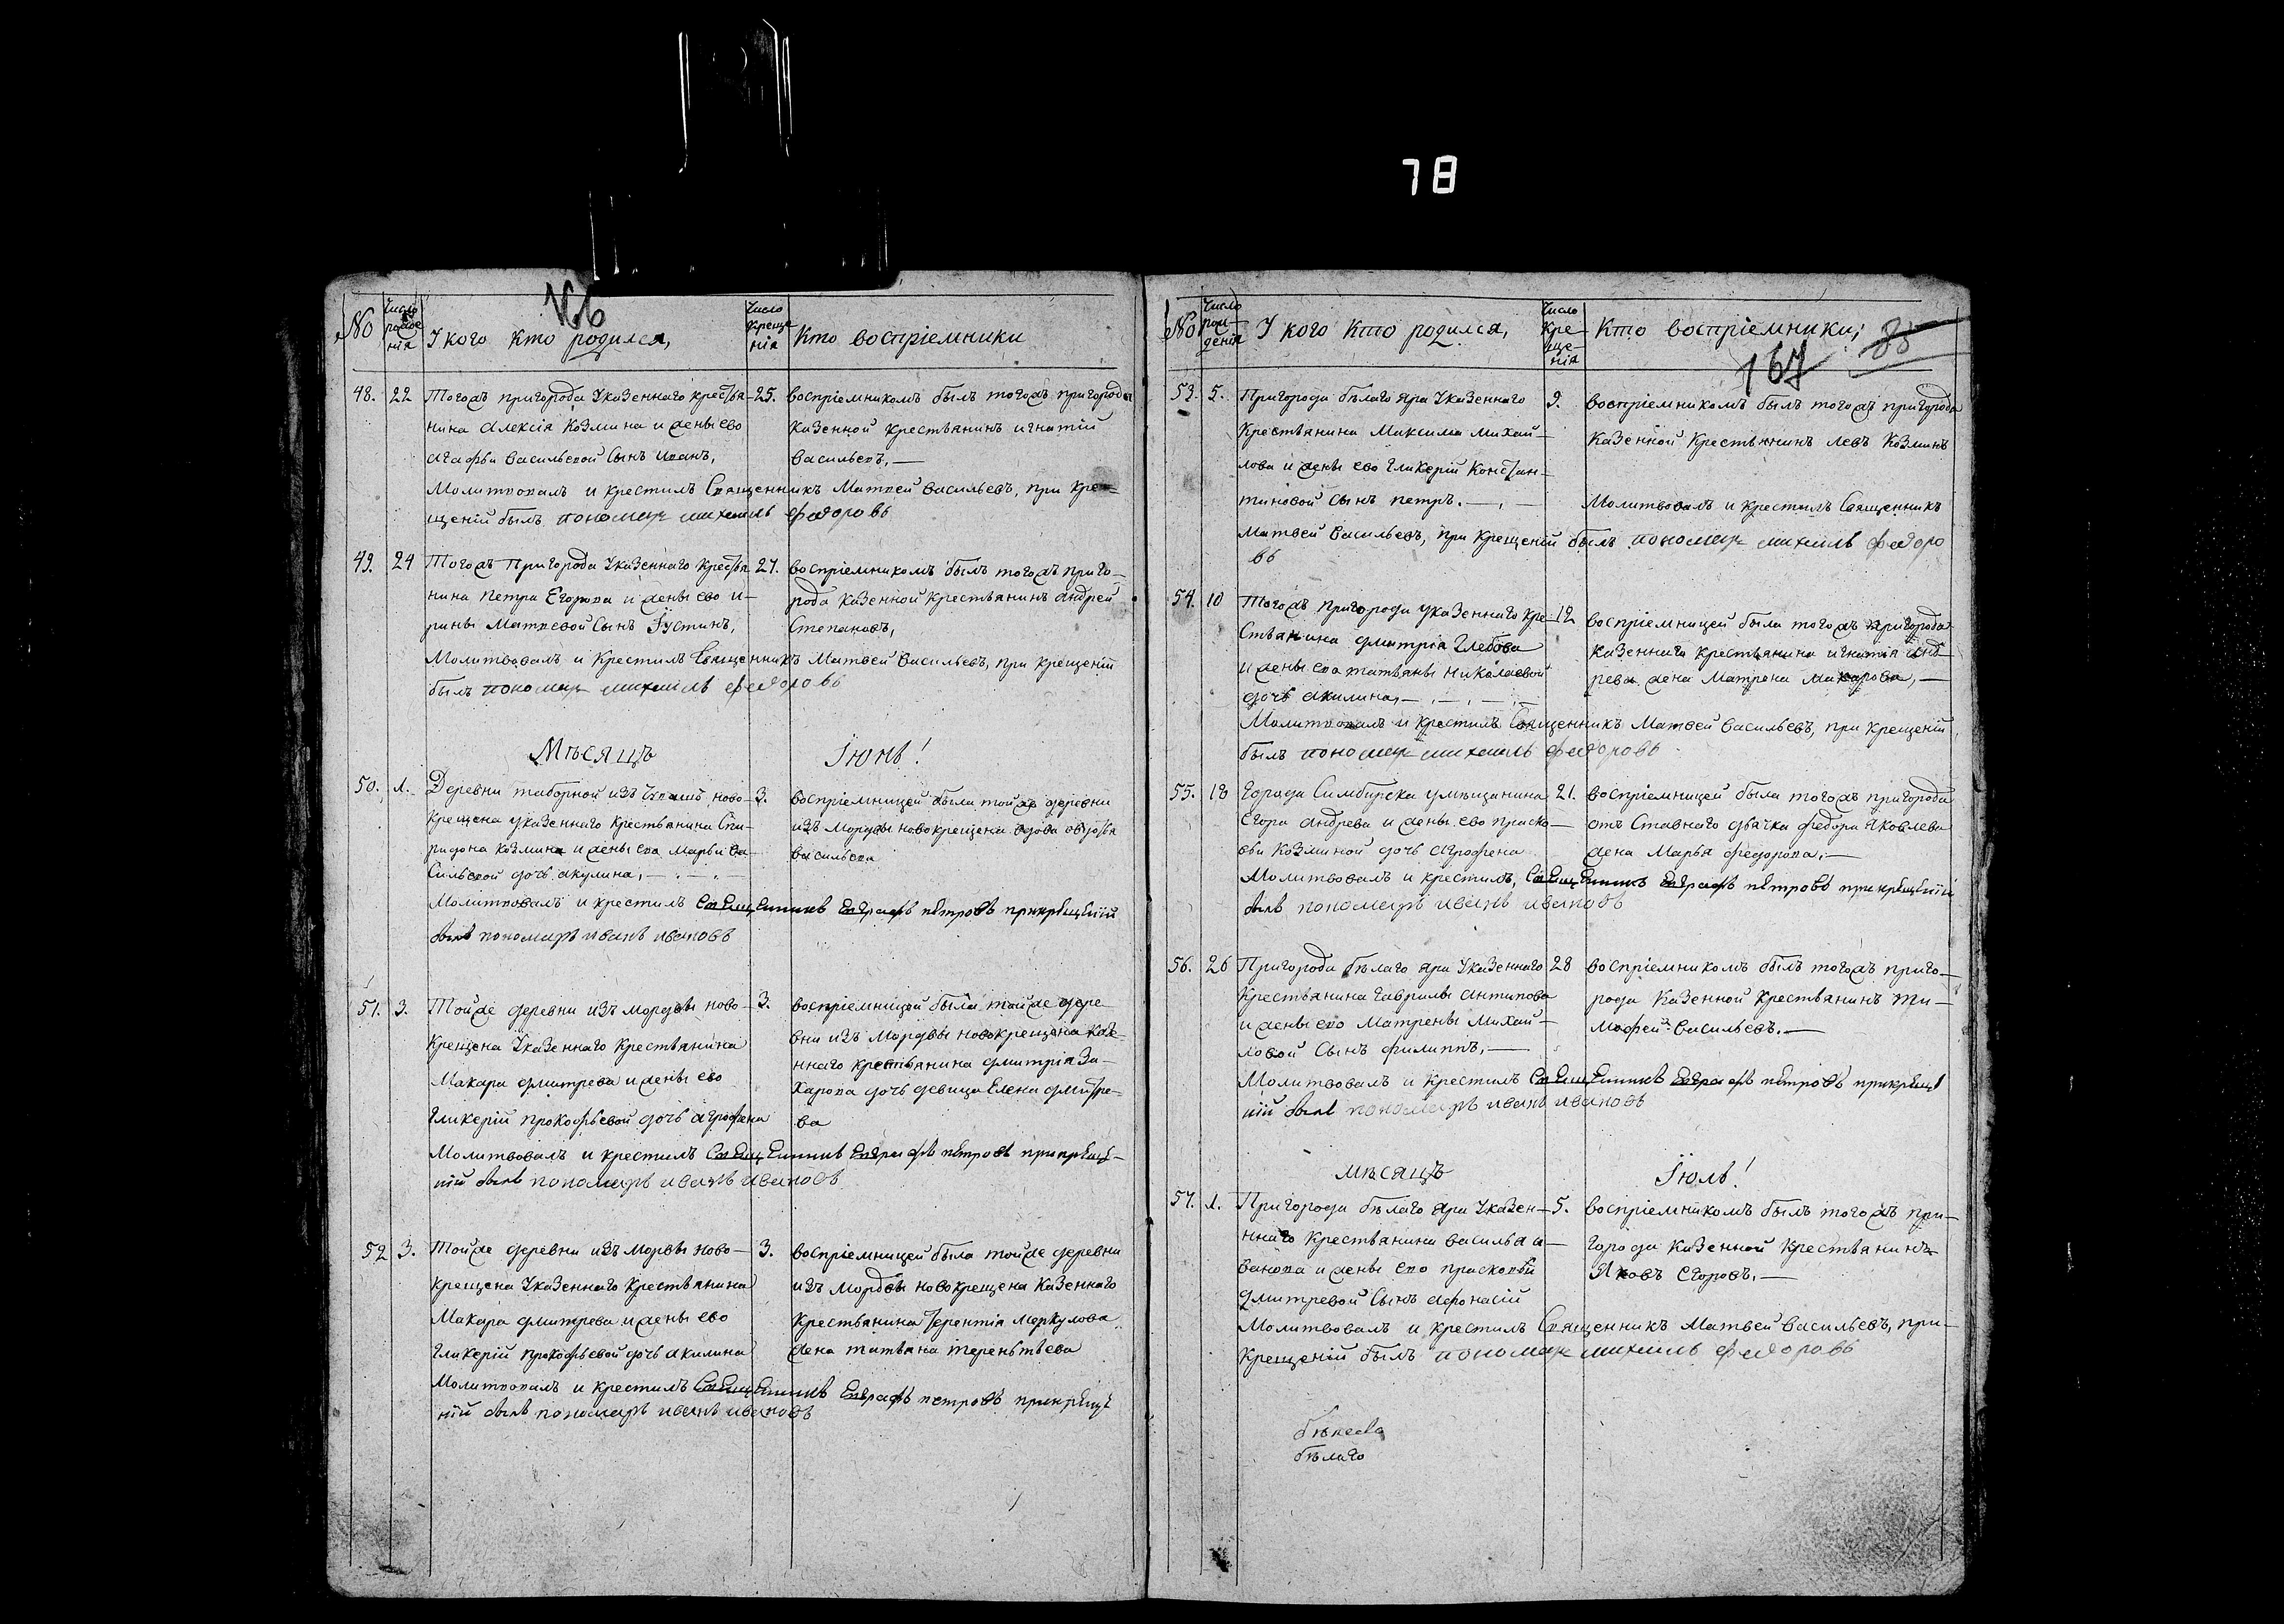 78
166
No
Число рожденія
У кого кто родился,
Число крещенія
Кто воспріемники
48. 22
Тогожъ пригорода Указеннаго крестья-
нина Алексія Козмина и жены ево
Агафьи Васильевой Сынъ Иванъ,
25.
воспріемникомъ былъ тогожъ пригорода
Казенной Крестьянинъ игнатій
Васильевъ,—
Молитвовалъ и крестилъ Священникъ Матвей Васильевъ, при кре=
щеній былъ пономарь михаилъ федоровъ
49. 24
Тогожъ Пригорода Указеннаго Крестья
нина Петра Егорова и жены ево и-
рины Матвевой Сынъ Іустинъ,
27.
воспріемникомъ былъ тогожъ приго-
рода казенной Крестьянинъ андрей
Степановъ,
Молитвовалъ и Крестилъ Священникъ Матвей Васильевъ, при крещеній
былъ пономарь михаилъ федоровъ
Мѣсяцъ Іюнь!
50. 1.
Деревни таборной изъ Чувашъ ново-
крещена указеннаго крестьянина Спи-
ридона Козмина и жены ево Марьи Ва-
сильевой дочь акулина,—.—.—
3.
воспріемницей была тойже деревни
изъ Мордвы новокрещена вдова авдотья
васильева
Молитвовалъ и крестилъ Священникъ Евграфъ петровъ прикрещеніи
былъ пономарь иванъ ивановъ
51. 3.
Тойже деревни изъ мордвы ново-
крещена Указеннаго Крестьянина
Макара дмитрева и жены ево
Гликерій прокофьевой дочь агрофена
3.
воспріемницей была тойже дере-
вни изъ Мордвы новокрещена казе-
ннаго крестьянина дмитрія За-
харова дочь девица Елена дмитре-
ва
Молитвовалъ и крестилъ Священникъ Евграфъ петровъ прикреще-
ніи былъ пономарь иванъ ивановъ
52 3.
Тойже деревни изъ Морвы ново-
крещена Указеннаго Крестьянина
Макара дмитрева и жены ево
Гликерій прокофьевой дочь акилина
3.
воспріемницей была тойже деревни
изъ мордвы новокрещена казеннаго
Крестьянина Терентія Меркулова
жена татьяна терентьева
Молитвовалъ и крестилъ Священникъ Евграфъ петровъ прикреще
ніи былъ пономарь иванъ ивановъ
No
Число рожденія
У кого Кто родился,
Число крещенія
Кто воспріемники;
167
53. 5.
Пригорода бѣлаго яра Указеннаго
Крестьянина Максима Михай-
лова и жены ево Гликерій Констан-
тиновой сынъ петръ.—.—
9.
воспріемникомъ былъ тогожъ пригорода
Казенной Крестьянинъ левъ Козминъ
Молитвовалъ и Крестилъ Священникъ
Матвей Васильевъ, при Крещеній былъ пономарь михаилъ федоро
въ
54. 10
Тогожъ пригорода указеннаго Кре-
стьянина дмитрія Глебова
и жены ево татьяны николаевой
дочь акилина,—.—.—
12
воспріемницей была тогожъ пригорода
Казеннаго Крестьянина игнатія анд-
рева жена Матрена Макарова,—
Молитвовалъ и крестилъ Священникъ Матвей Васильевъ, при крещеній
былъ пономарь михаилъ федоровъ
55. 18
Города Симбирска умещанина
Егора андрева и жены ево праско-
вьи Козминой дочь агрофена
21.
воспріемницей была тогожъ пригорода
отъ Ставнаго дьячка федора яковлева
жена Марья федорова,—
Молитвовалъ и крестилъ, Священникъ Евграфъ петровъ прикрещеніи
былъ пономарь иванъ ивановъ
56. 26
Пригорода бѣлаго яра Указеннаго
Крестьянина Гаврилы антипова
и жены ево Матрены Михай-
ловой Сынъ филиппъ,—
28
воспріемникомъ былъ тогожъ приго-
рода Казенной Крестьянинъ ти-
мофей Васильевъ.—
Молитвовалъ и крестилъ Священникъ Евграфъ петровъ прикреще
ніи былъ пономарь иванъ ивановъ
мѣсяцъ Іюль!
57. 1.
Пригорода бѣлаго яра Указен-
ннаго крестьянина васильа и-
ванова и жены ево прасковьи
дмитревой Сынъ афонасій
5.
воспріемникомъ былъ тогожъ при-
города казенной Крестьянинъ
Яковъ Егоровъ.—
Молитвовалъ и крестилъ Священникъ Матвей Васильевъ, при-
крещеній былъ пономарь михаилъ федоровъ
бѣлаго